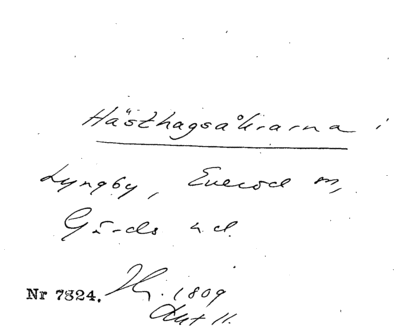 Hästhagsåkrarna i
Lyngby, Everöd sn,
Gärds hd.
Nr 7824. Hj. 1809
Akt 11.